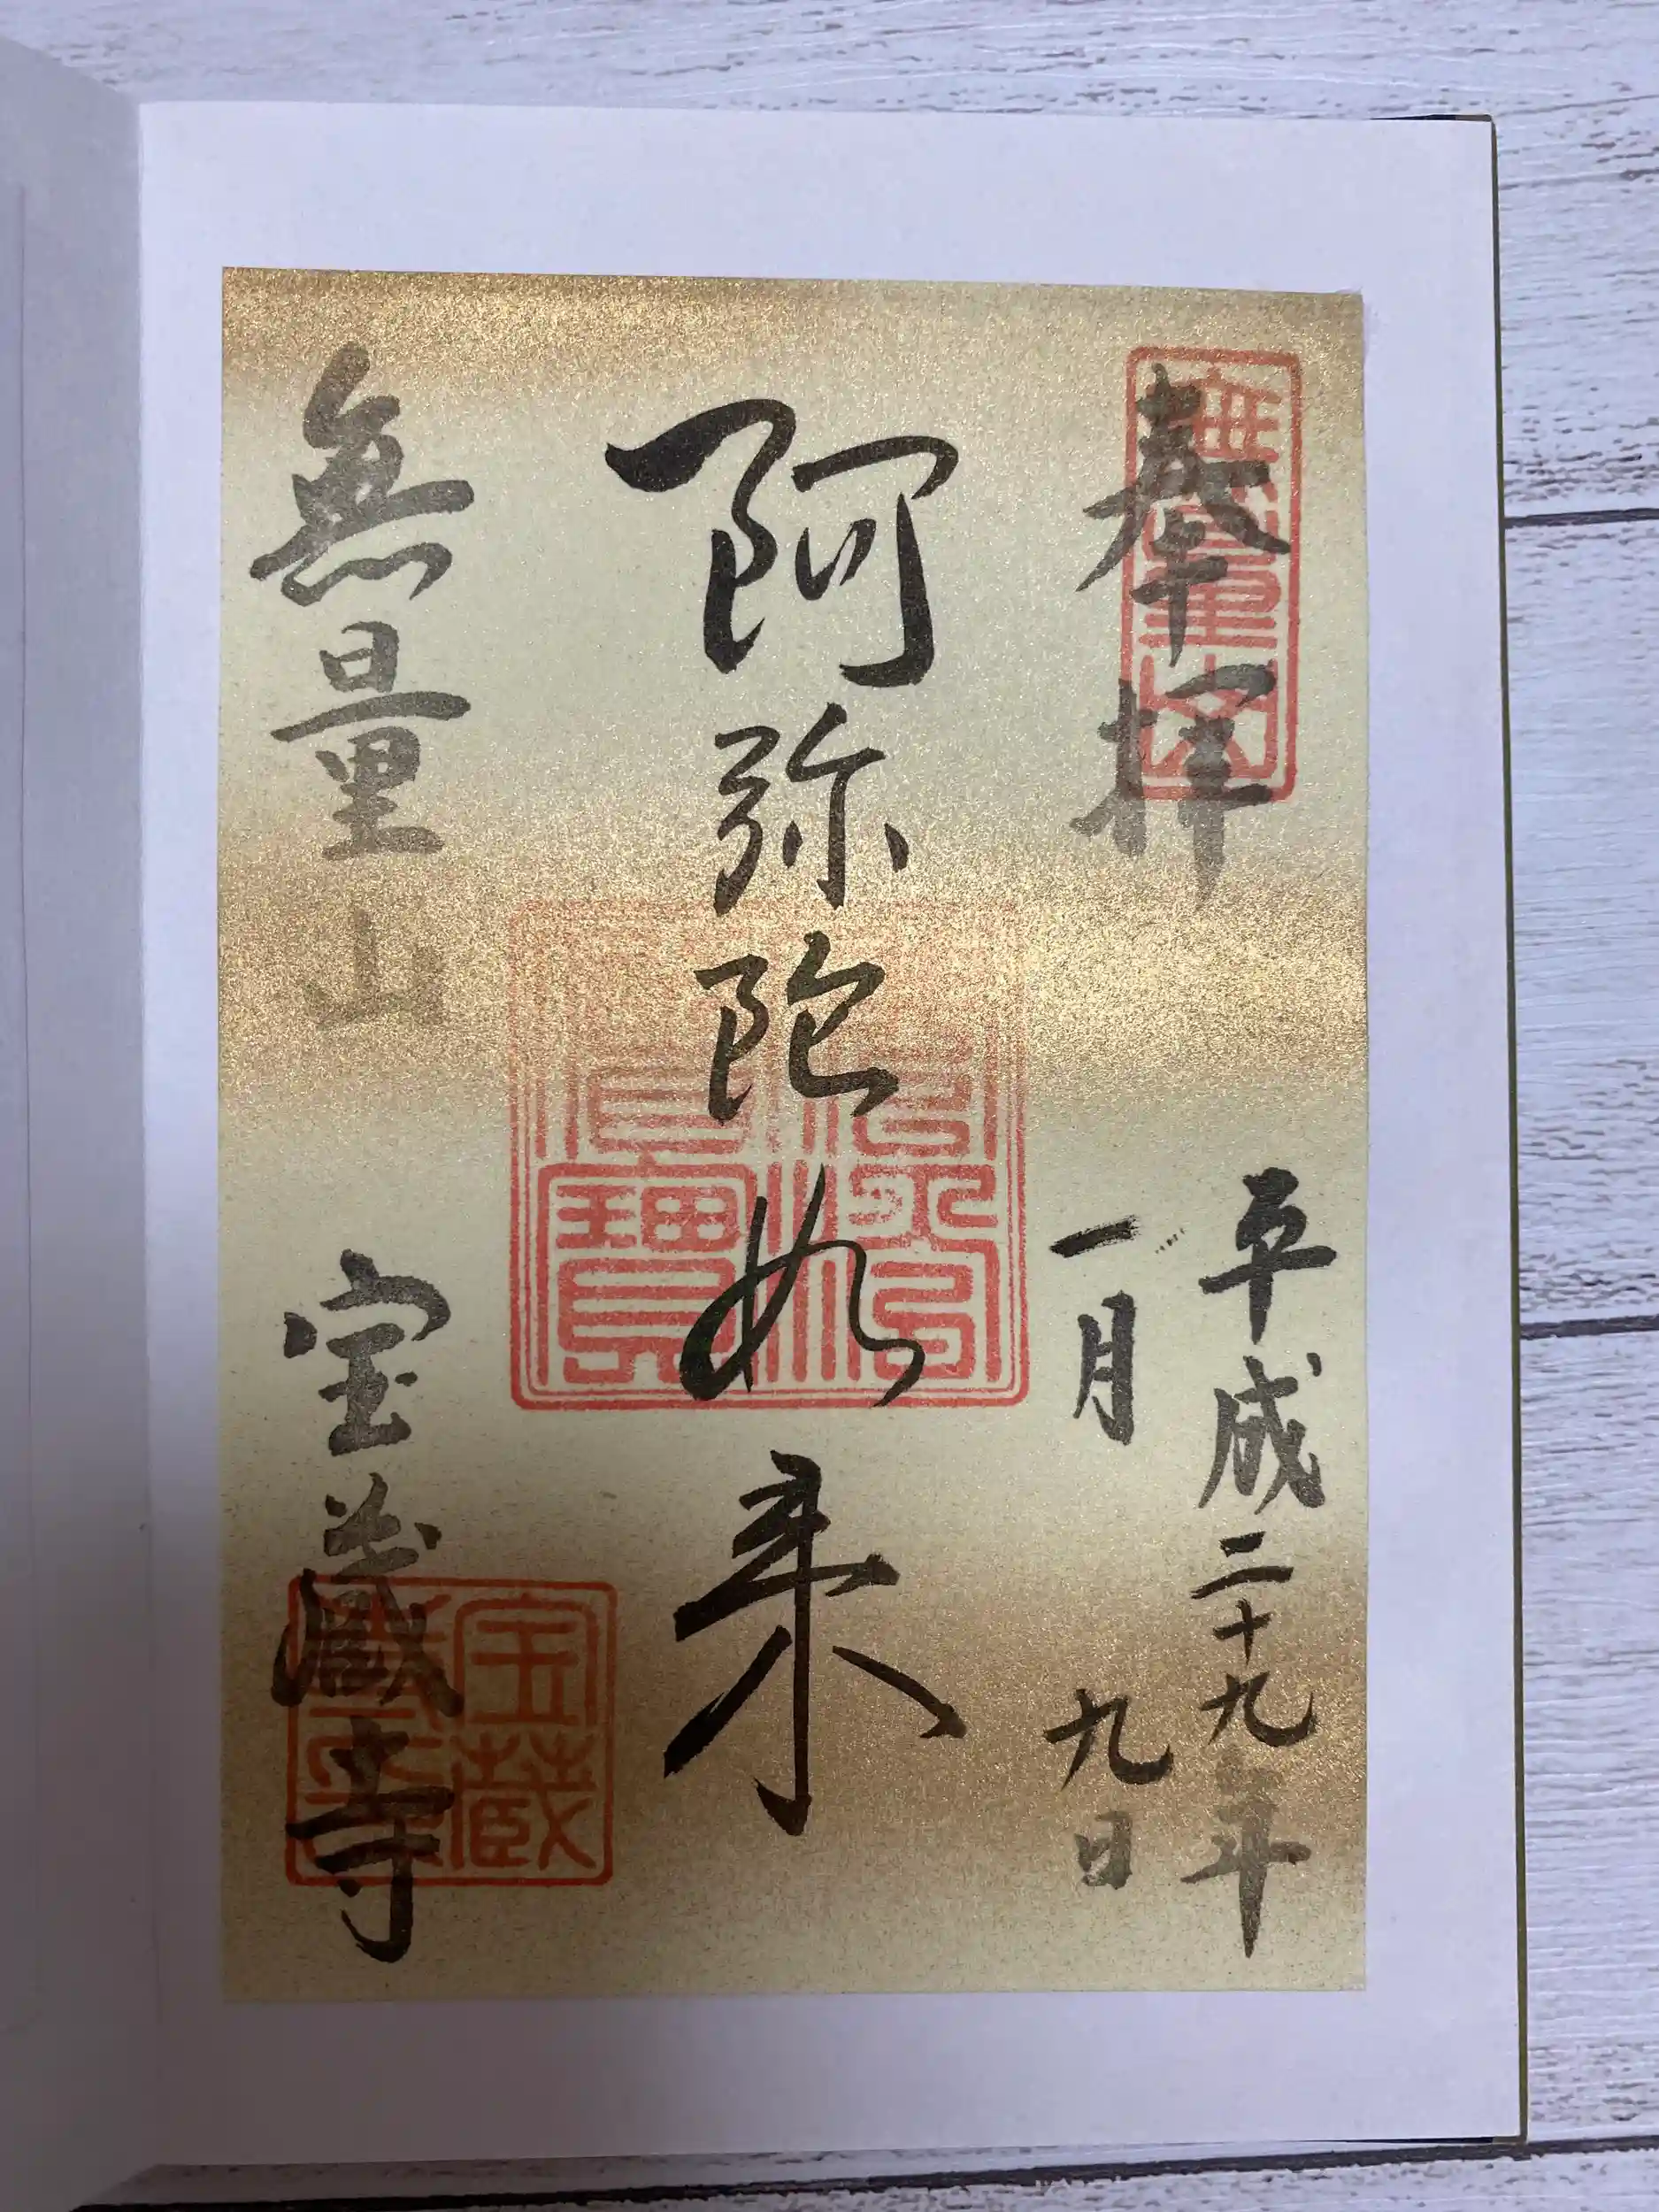 奉拝
平成二十九年
一月九日
阿弥陀如来
無量山
宝蔵寺
無量山
仏法僧寶
宝蔵寺印